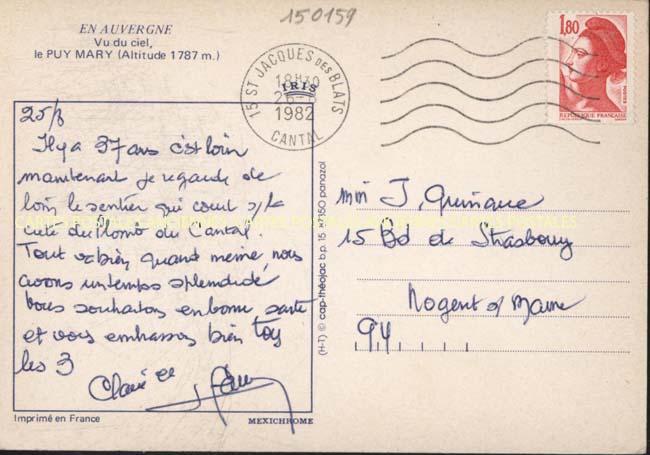 150159
EN AUVERGNE
Vu du ciel,
le PUY MARY (Altitude 1787 m.)
15 ST JACQUES DES BLATS
18H30
1982
CANTAL
IRIS
1,80
POSTES
REPUBLIQUE FRANÇAISE
25/8
Il y a 37 ans c'est loin
maintenant je regarde de
loin le sentier qui court s/la
crête du Plomb du Cantal.
Tout va bien quand même, nous
avons un temps splendide
Vous souhaitons en bonne santé
et vous embrassons bien tous
les 3
Claire et
mm J.
15 Bd de Strasbourg
Nogent s/ Marne
94
(H-T) © cap-théojac b.p. 15 87350 panazol
Imprimé en France
MEXICHROME